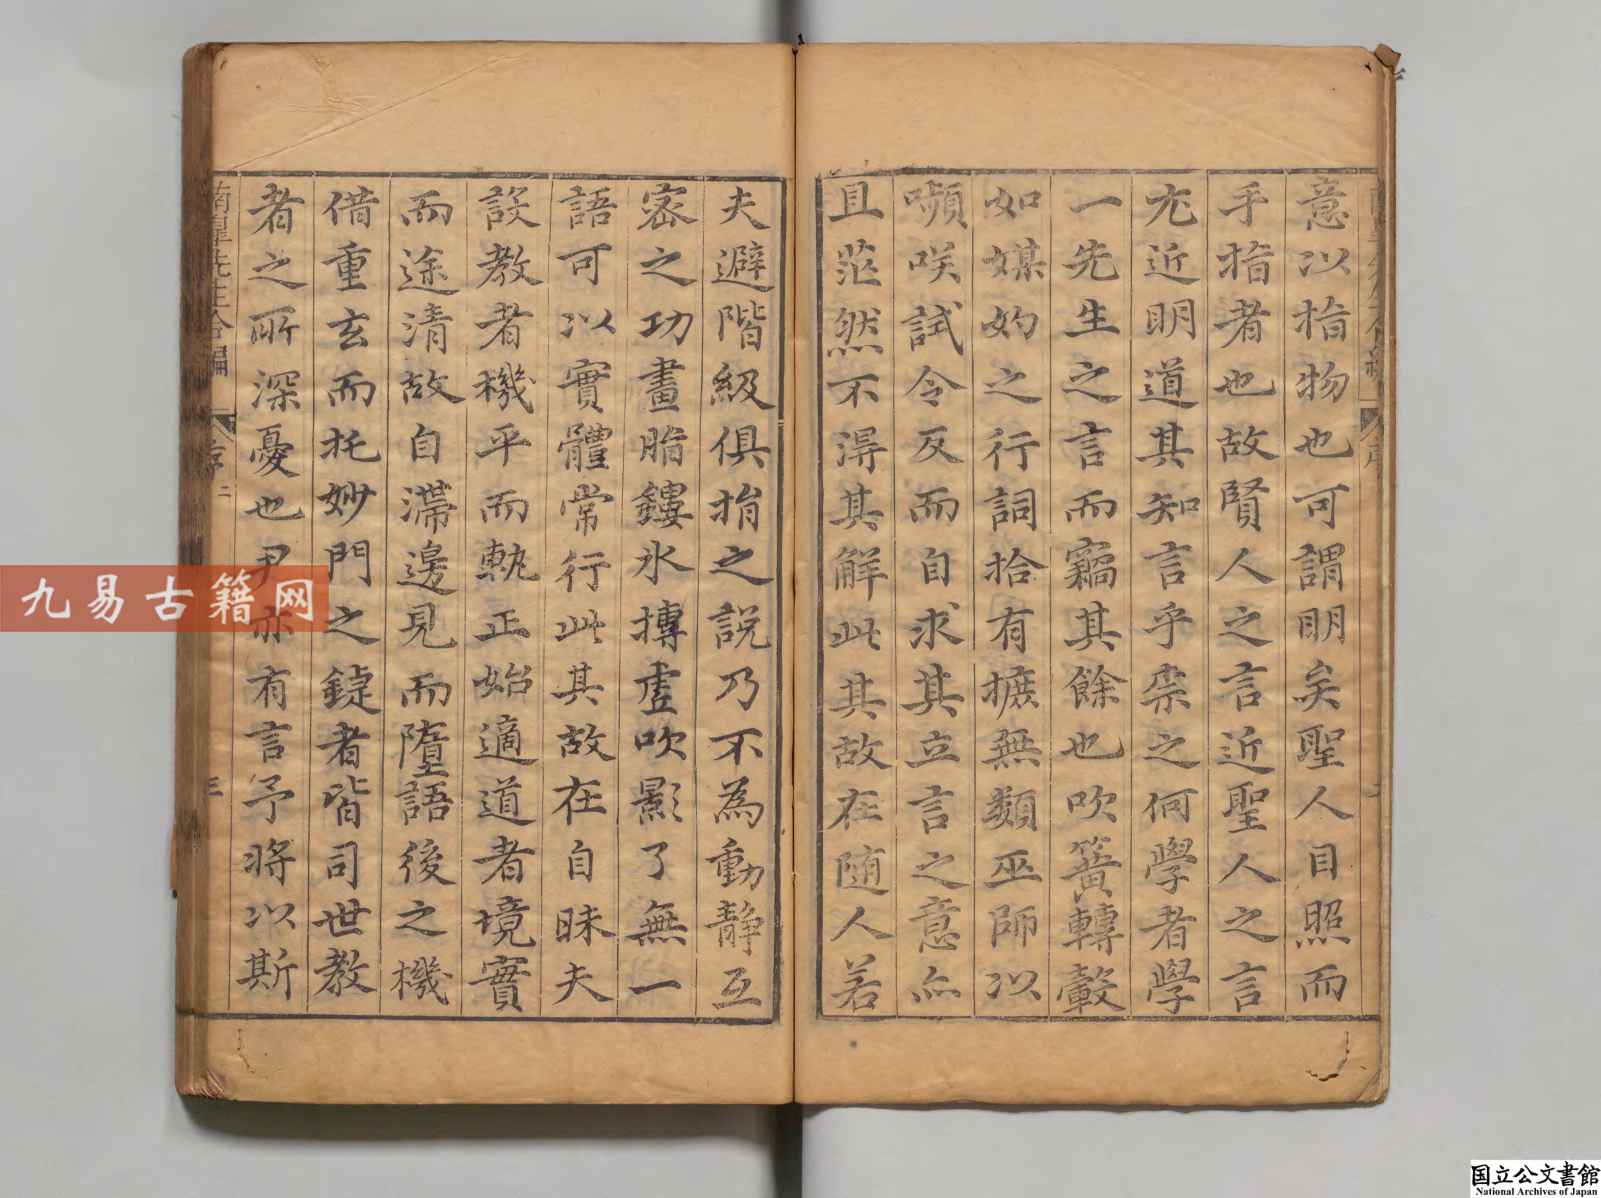 意以指物也可謂明矣聖人目照而
手指者也故賢人之言近聖人之言
尤近明道其知言乎柰之何學者學
一先生之言而竊其餘也吹簧轉轂
如媒妁之行詞拾有摭無類巫師以
嚬咲試令反而自求其立言之意亦
且茫然不淂其觧此其故在随人若
夫避階級俱捐之說乃不為動静互
宻之功畫脂鏤氷摶虗吹影了無一
語可以實體常行此其故在自昧夫
設教者機平而執正始適道者境實
而途清故自滯邊見而墮語後之機
借重玄而托妙門之鍉者皆司世教
者之所深憂也尹亦有言予將以斯
南皐先生合編
序二
三
九易古籍网
国立公文書館
National Archives of Japan